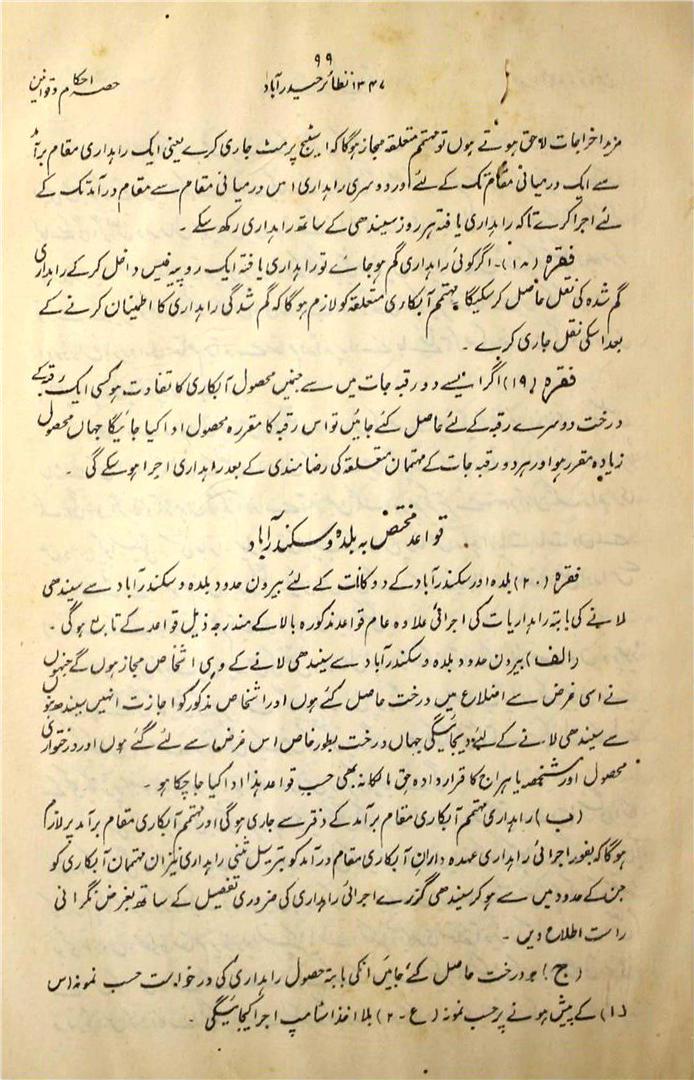 ۹۹
احکام وقوانین حصہ
۱۳۴۷ نظائر حیدرآباد
مزید اخراجات لاحق ہوتے ہوں تو مہتمم متعلقہ مجاز ہوگا کہ اسٹیج پرمٹ جاری کرے یعنی ایک راہداری مقام برآمد
سے ایک درمیانی مقام تک کے لئے اور دوسری راہداری اس درمیانی مقام سے مقام درآمد تک کے
لئے اجرا کرے تاکہ راہداری یافتہ ہر روز سیندھی کے ساتھ راہداری رکھ سکے ۔
فقرہ (۱۸)۔ اگر کوئی راہداری گم ہوجائے تو راہداری یافتہ ایک روپیہ فیس داخل کرکے راہداری
گم شدہ کی نقل حاصل کرسکیگا مہتمم آبکاری متعلقہ کو لازم ہوگا کہ گم شدگی راہداری کا اطمینان کرنے کے
بعد اسکی نقل جاری کرے ۔
فقرہ (۱۹) اگر ایسے دو رقبہ جات میں سے جنمیں محصول آبکاری کا تفاوت ہو کسی ایک رقبہ کے
درخت دوسرے رقبہ کے لئے حاصل کئے جائیں تو اس رقبہ کا مقررہ محصول ادا کیا جائیگا جہاں محصول
زیادہ مقرر ہو اور ہر دو رقبہ جات کے مہتممان متعلقہ کی رضامندی کے بعد راہداری اجرا ہوسکے گی ۔
قواعد مختص بہ بلدہ و سکندرآباد
فقرہ (۲۰) بلدہ اور سکندرآباد کے دوکانات کے لئے بیرون حدود بلدہ و سکندرآباد سے سیندھی
لانے کی بابتہ راہداریات کی اجرائی علاوہ عام قواعد مذکورہ بالا کے مندرجہ ذیل قواعد کے تابع ہوگی ۔
(الف) بیرون حدود بلدہ و سکندرآباد سے سیندھی لانے کے وہی اشخاص مجاز ہوں گے جنہوں
نے اسی غرض سے اضلاع میں درخت حاصل کئے ہوں اور اشخاص مذکور کو اجازت انہیں سیندھ بنوں
سے سیندھی لانے کے لئے دیجائیگی جہاں درخت بطور خاص اس غرض سے لئے گئے ہوں اور درختواری
محصول اور مشخصہ یا ہراج کا قرار دادہ حق مالکانہ بھی حسب قواعد ہذا ادا کیا جاچکا ہو ۔
(ب) راہداری مہتمم آبکاری مقام برآمد کے دفتر سے جاری ہوگی اور مہتمم آبکاری مقام برآمد پر لازم
ہوگا کہ بفور اجرائی راہداری عہدہ داران آبکاری مقام درآمد کو بترسیل مثنی راہداری نیز ان مہتممان آبکاری کو
جن کے حدود میں سے ہوکر سیندھی گزرے اجرائی راہداری کی ضروری تفصیل کے ساتھ بغرض نگرانی
راست اطلاع دیں ۔
(ج) جو درخت حاصل کئے جائیں انکی بابتہ حصول راہداری کی درخواست حسب نمونہ اس
(۱) کے پیش ہونے پر حسب نمونہ (ع-۲) بلا اخذ اسٹامپ اجرا کیجائیگی ۔